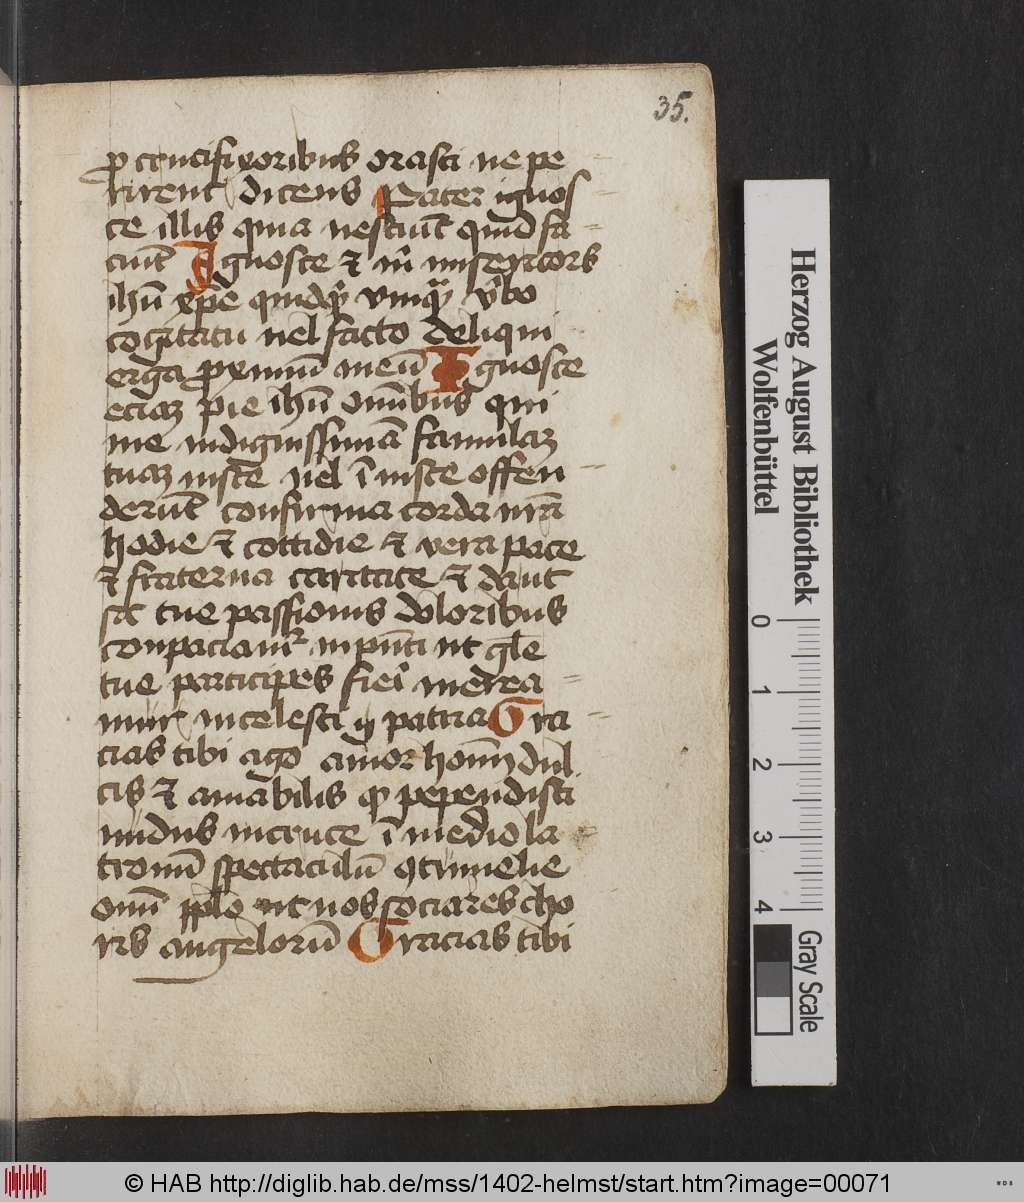 35.
ꝓ crucifixoribus orasti ne pe
rirent dicens Pater ignos
ce illis quia nesciūt quid fa
ciūt Ignosce et m̄ misericors
ihū xp̄e quidq̄ vmq̄ v̄bo
cogitatu uel facto deliqui
erga proximū meū Ignosce
eciam pie ihū omībus qui
me indignissimā famulam
tuam iuste uel ī iuste offen
derūt confirma corda nrā
hodie et cottidie et vera pace
et fraterna caritate et da ut
sic tue passionis doloribus
conpaciamur inpn̄ti ut gl̄e
tue participes fieri merea
mur in celesti patria Gra
cias tibi ago amor homīm dul
cis et amabilis qui pependisti
nudus in cruce ī medio la
tronū spectaculū ꝯtumelie
om̄i ppl̄o ut nos sociares cho
ris angelorū Gracias tibi
Herzog August Bibliothek
Wolfenbüttel
0 1 2 3 4
Gray Scale
© HAB http://diglib.hab.de/mss/1402-helmst/start.htm?image=00071